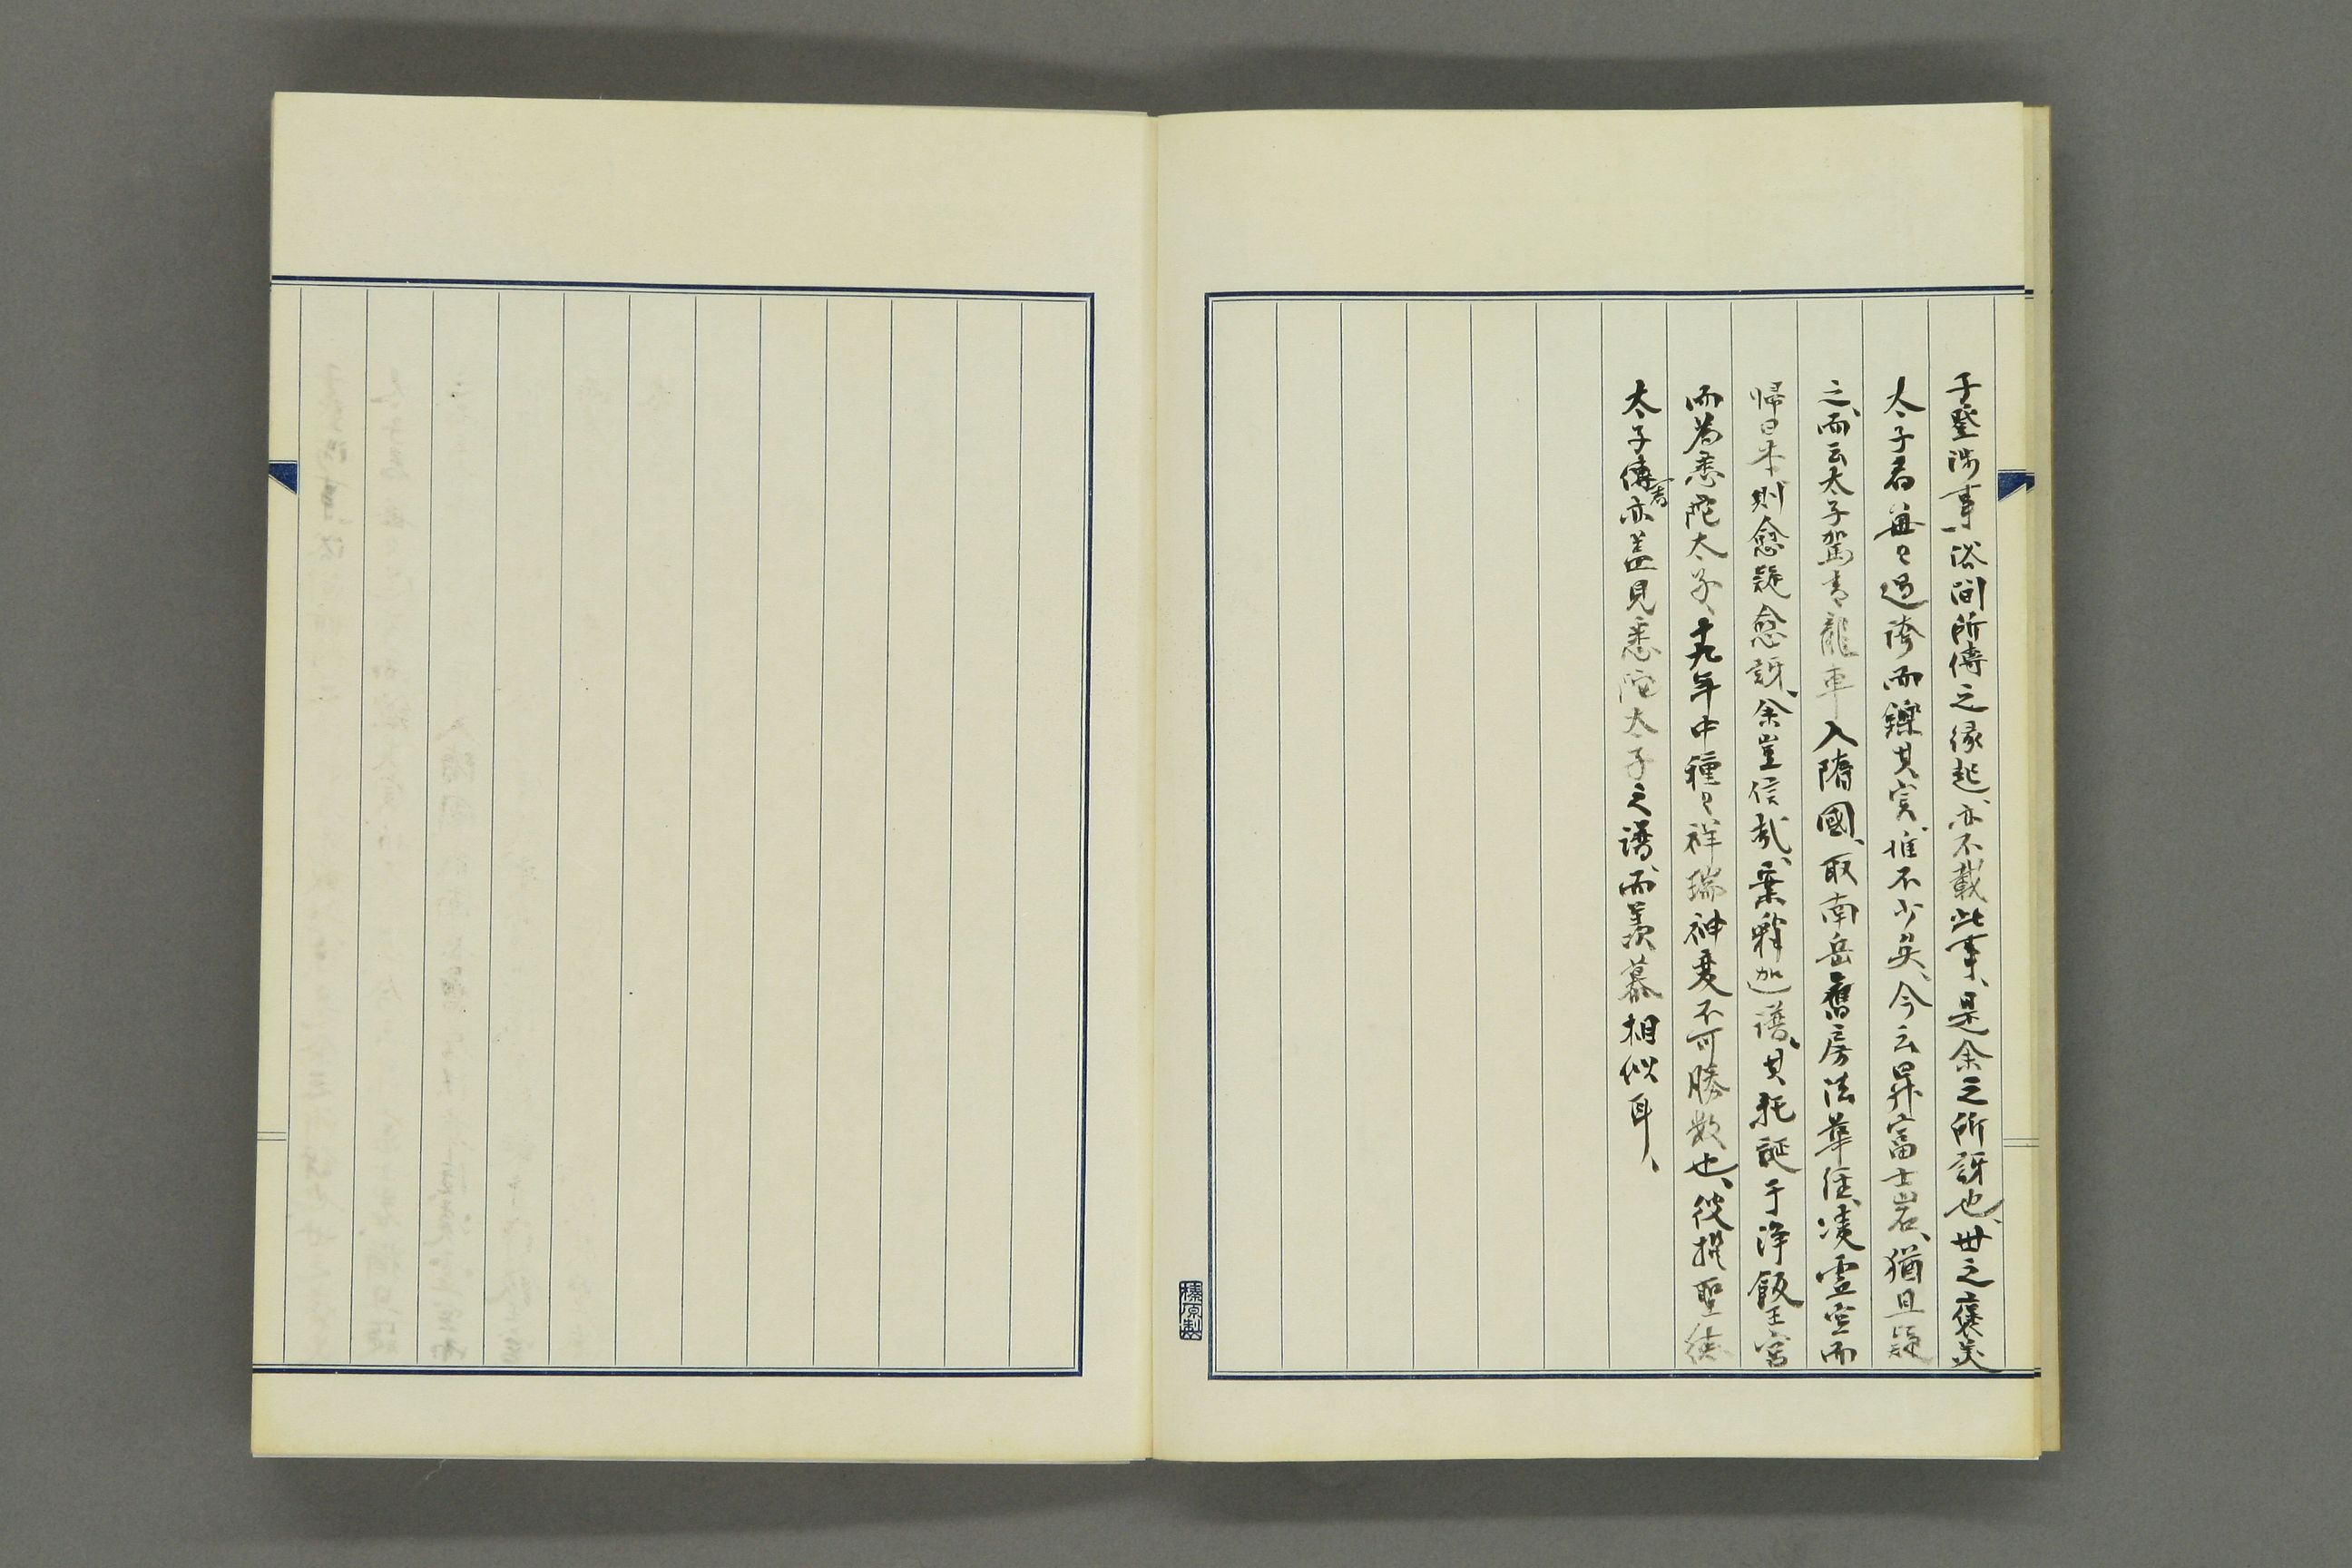 子登渉事、俗間所傳之縁起、亦不載此事、是余之所訝也、世之褒美
太子者、每々過誇而鑠其実、惟不少矣、今云昇富士岩、猶且疑
之、而云太子駕青龍車入隋國、取南岳舊房法華経、凌雲空而
帰日本、則愈疑愈訝、余豈信哉、案釋迦譜、其托誕于浄飯王宮
而為悉陀太子、十九年中種々祥瑞神変不可勝数也、彼撰聖徳
太子傳者亦盖見悉陀太子之譜、而羨慕相似耳、
榛原製